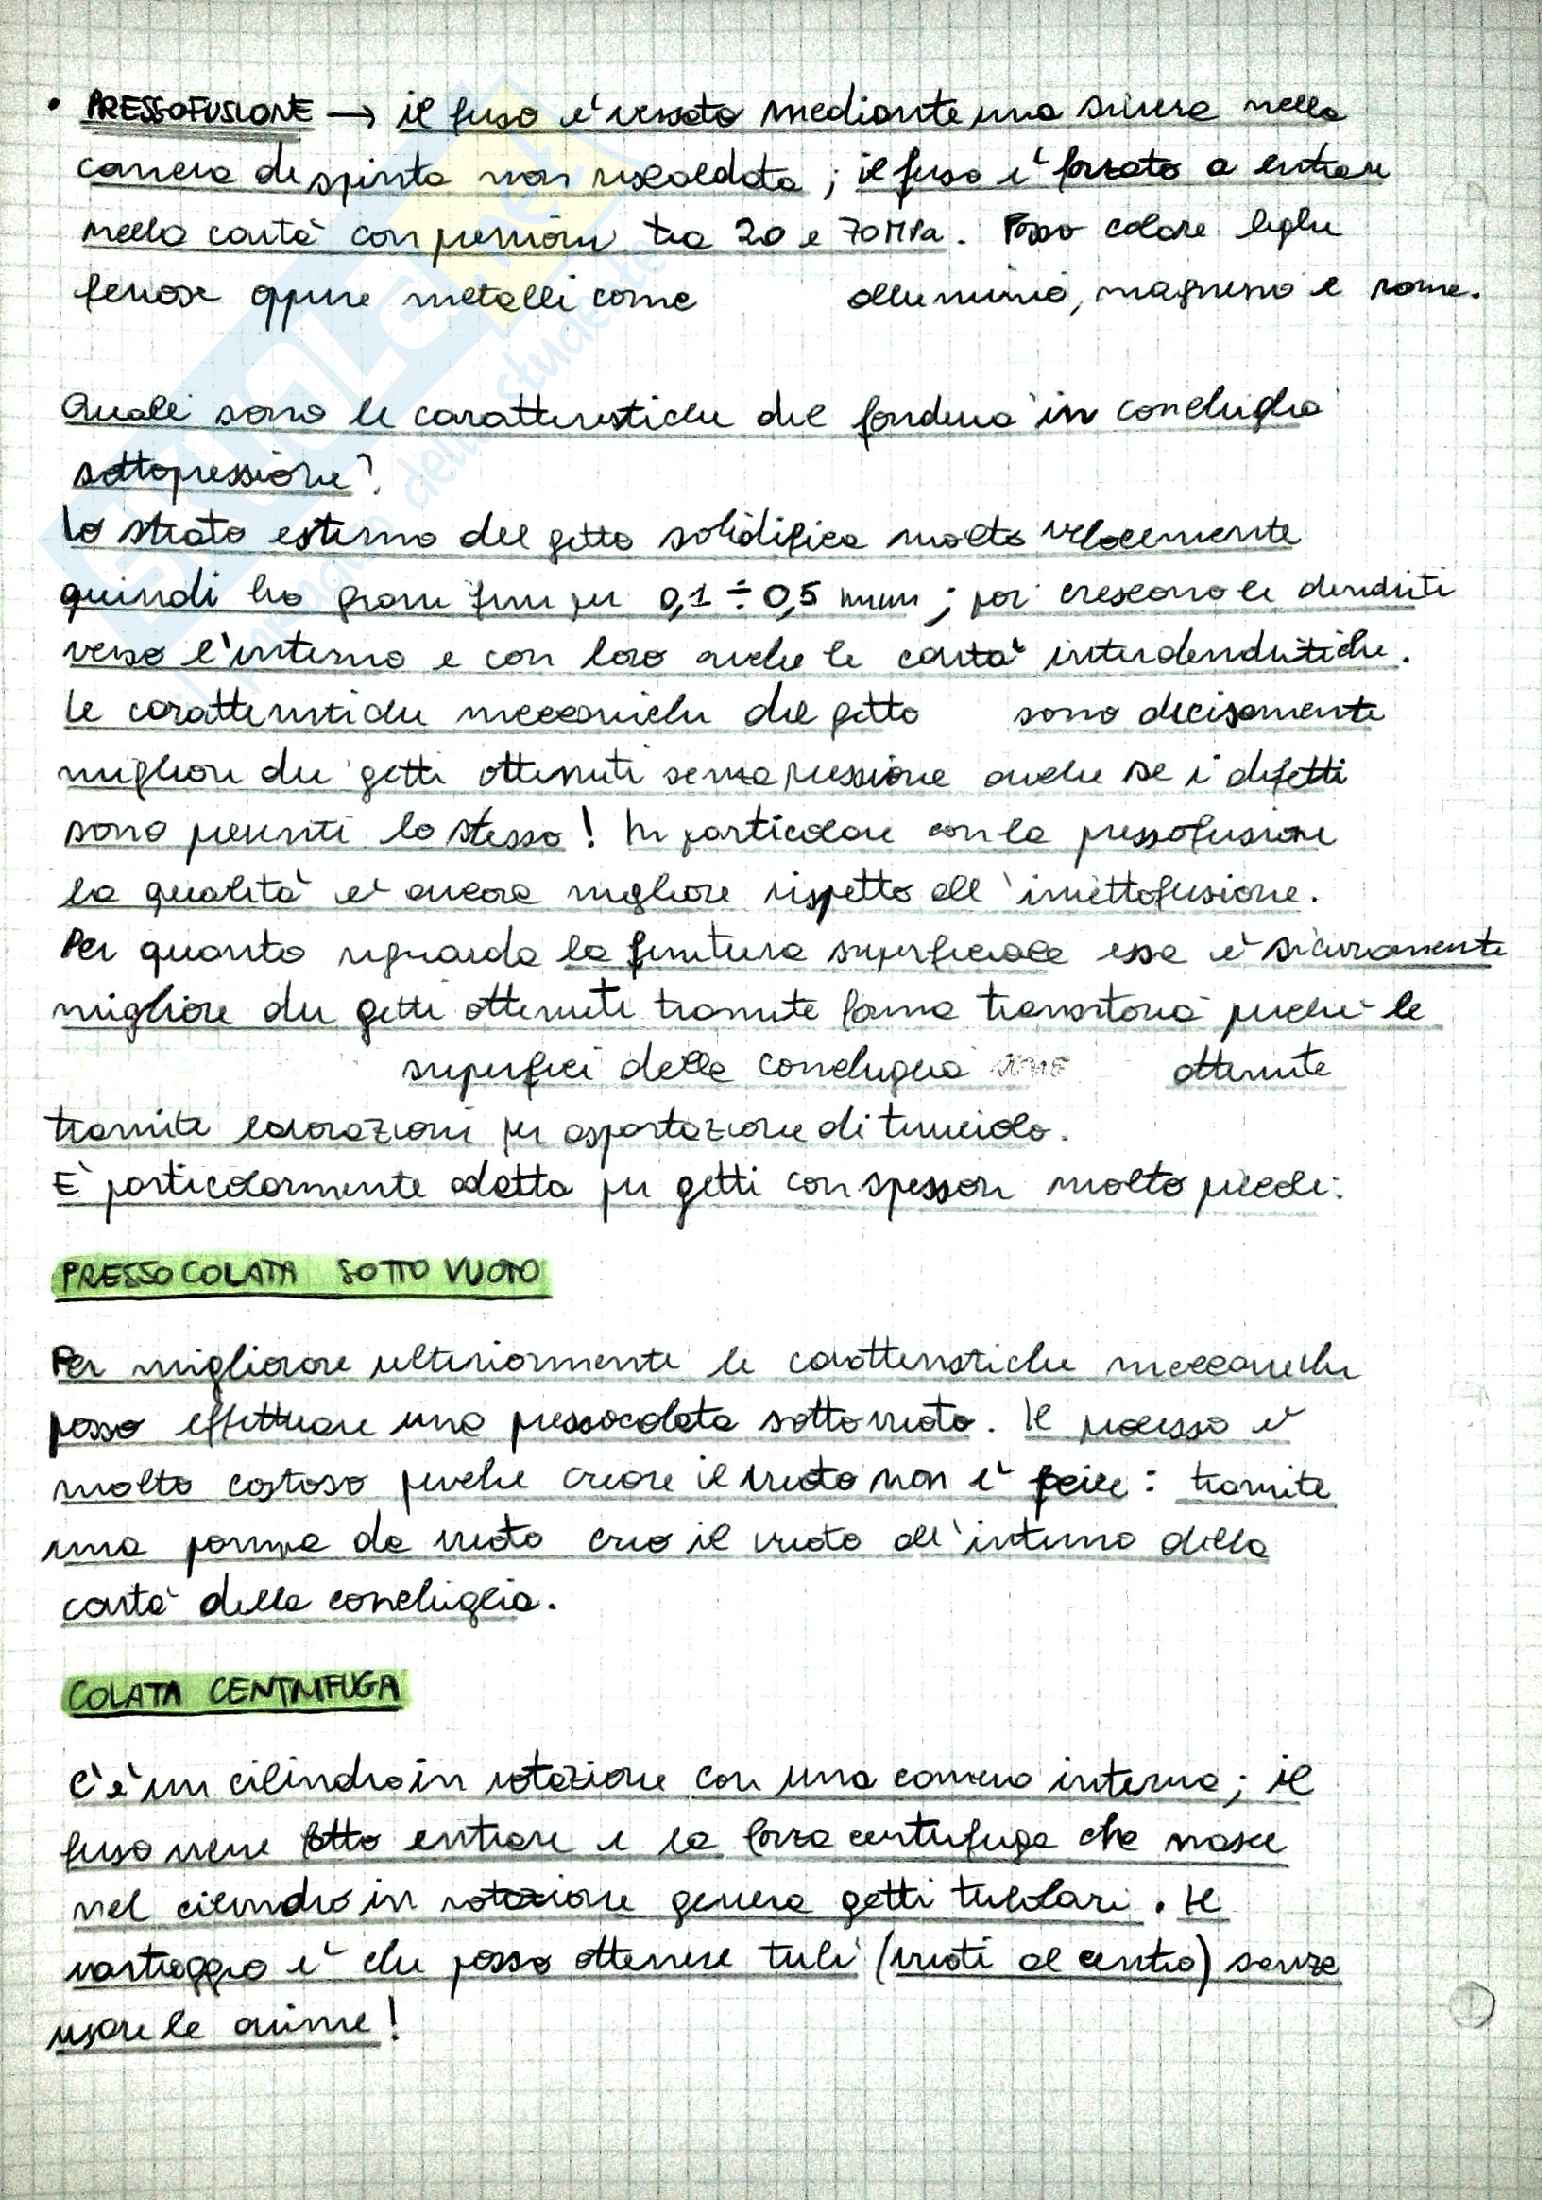 • PRESSOFUSIONE → il fuso è versato mediante una siviera nella
camera di spinta non riscaldata; il fuso è forzato a entrare
nella cavità con pressioni tra 20 e 70 MPa. Posso colare leghe
ferrose oppure metalli come alluminio, magnesio e rame.
Quali sono le caratteristiche del fonderia in conchiglia
sottopressione?
Lo strato esterno del getto solidifica molto velocemente
quindi ho grani fini per 0,1 ÷ 0,5 mm; poi crescono le dendriti
verso l'interno e con loro anche le cavità interdendritiche.
Le caratteristiche meccaniche del getto sono decisamente
migliori dei getti ottenuti senza pressione anche se i difetti
sono presenti lo stesso! In particolare con la pressofusione
la qualità è ancora migliore rispetto all'iniettofusione.
Per quanto riguarda la finitura superficiale essa è sicuramente
migliore dei getti ottenuti tramite forma transitoria perché le
superfici della conchiglia sono ottenute
tramite lavorazioni per asportazione di truciolo.
E' particolarmente adatta per getti con spessori molto piccoli.
PRESSOCOLATA SOTTO VUOTO
Per migliorare ulteriormente le caratteristiche meccaniche
posso effettuare una pressocolata sottovuoto. Il processo è
molto costoso perché creare il vuoto non è facile: tramite
una pompa da vuoto creo il vuoto all'interno della
cavità della conchiglia.
COLATA CENTRIFUGA
C'è un cilindro in rotazione con una camera interna; il
fuso viene fatto entrare e la forza centrifuga che nasce
nel cilindro in rotazione genera getti tubolari. Il
vantaggio è che posso ottenere tubi (vuoti al centro) senza
usare le anime!
SKUOLA.net
il mondo dello studente